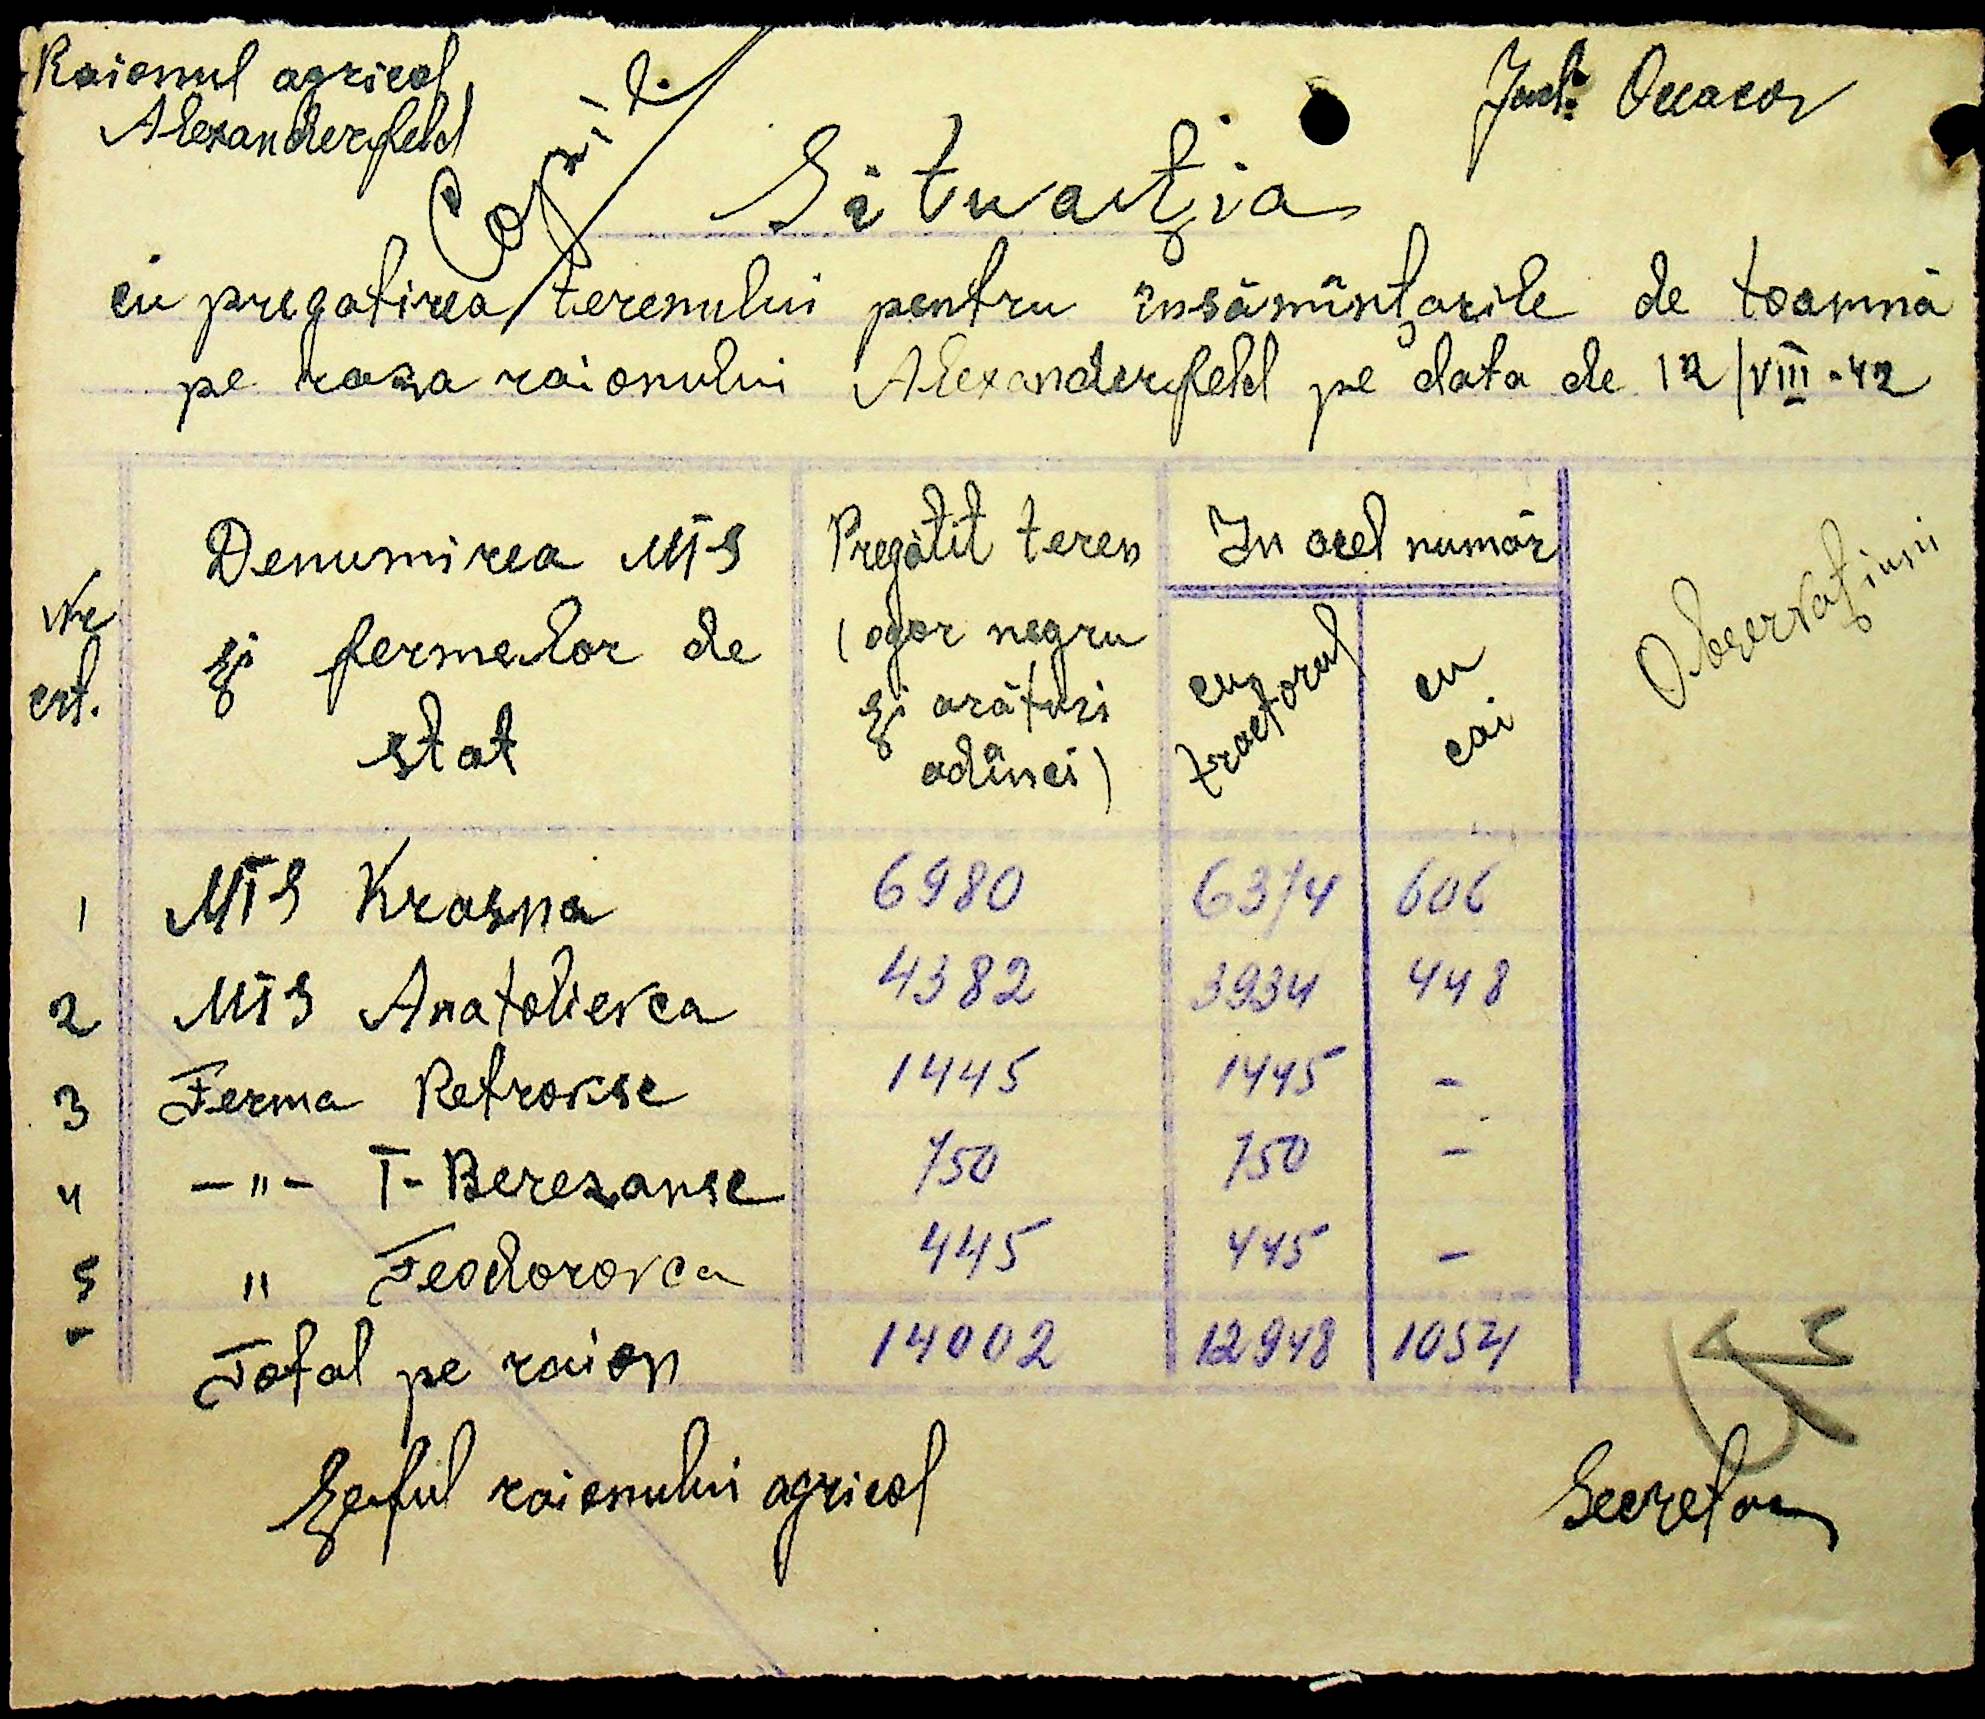 Raionul agricol
Alexanderfeld
Jud: Oceacov
Copie
Situaţia
cu pregatirea terenului pentru însămînţarile de toamnă
pe raza raionului Alexanderfeld pe data de 12/VIII-42
Nr crt. | Denumirea MTS şi fermelor de stat | Pregătit teren (ogor negru şi arături adînci) | In acel număr | Observaţiuni
cu tractorul | cu cai
1 MTS Krasna 6980 6374 606
2 MTS Anatolievca 4382 3934 448
3 Ferma Petrovsc 1445 1445 -
4 -"- T-Berezansc 750 750 -
5 " Feodorovca 445 445 -
- Total pe raion 14002 12948 1054
Şeful raionului agricol
Secretar